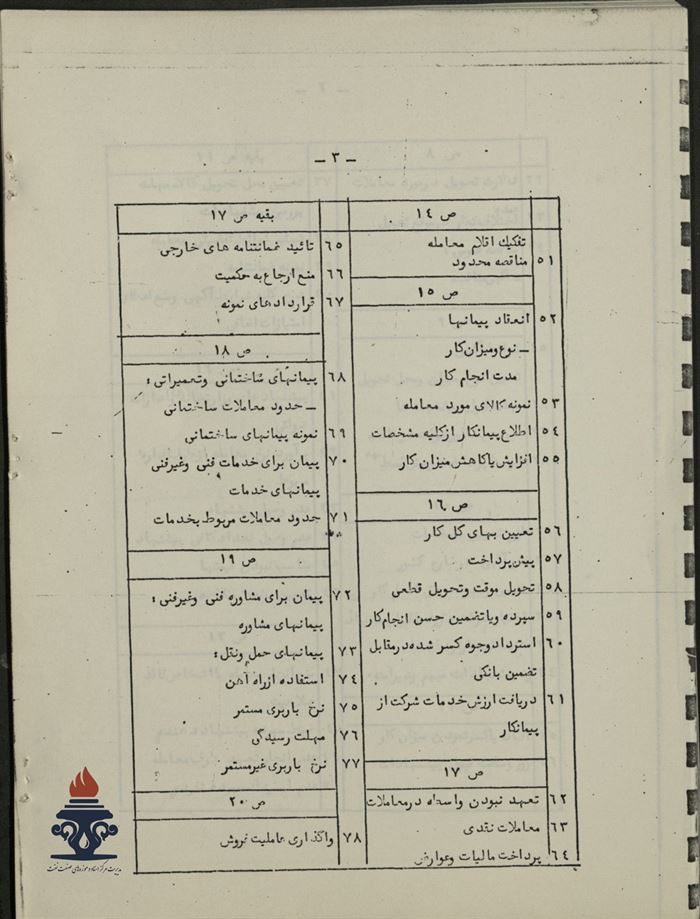 ـ ۳ ـ
ص ۱۴
تفکیک اقلام معامله
۵۱ مناقصه محدود
ص ۱۵
۵۲ انعقاد پیمانها
ـ نوع ومیزان کار
مدت انجام کار
۵۳ نمونه کالای مورد معامله
۵۴ اطلاع پیمانکار از کلیه مشخصات
۵۵ افزایش یا کاهش میزان کار
ص ۱۶
۵۶ تعیین بهای کل کار
۵۷ پیش پرداخت
۵۸ تحویل موقت وتحویل قطعی
۵۹ سپرده ویا تضمین حسن انجام کار
۶۰ استرداد وجوه کسر شده در مقابل
تضمین بانکی
۶۱ دریافت ارزش خدمات شرکت از
پیمانکار
ص ۱۷
۶۲ تعهد نبودن واسطه در معاملات
۶۳ معاملات نقدی
۶۴ پرداخت مالیات وعوارض
بقیه ص ۱۷
۶۵ تائید ضمانتنامه های خارجی
۶۶ منع ارجاع به حکمیت
۶۷ قراردادهای نمونه
ص ۱۸
۶۸ پیمانهای ساختمانی وتعمیراتی :
ـ حدود معاملات ساختمانی
۶۹ نمونه پیمانهای ساختمانی
۷۰ پیمان برای خدمات فنی وغیرفنی
پیمانهای خدمات
۷۱ حدود معاملات مربوط بخدمات
ص ۱۹
۷۲ پیمان برای مشاوره فنی وغیرفنی :
پیمانهای مشاوره
۷۳ پیمانهای حمل ونقل :
۷۴ استفاده از راه آهن
۷۵ نرخ باربری مستمر
۷۶ مهلت رسیدگی
۷۷ نرخ باربری غیرمستمر
ص ۲۰
۷۸ واگذاری عاملیت فروش
مدیریت مرکز اسناد و موزه‌های صنعت نفت